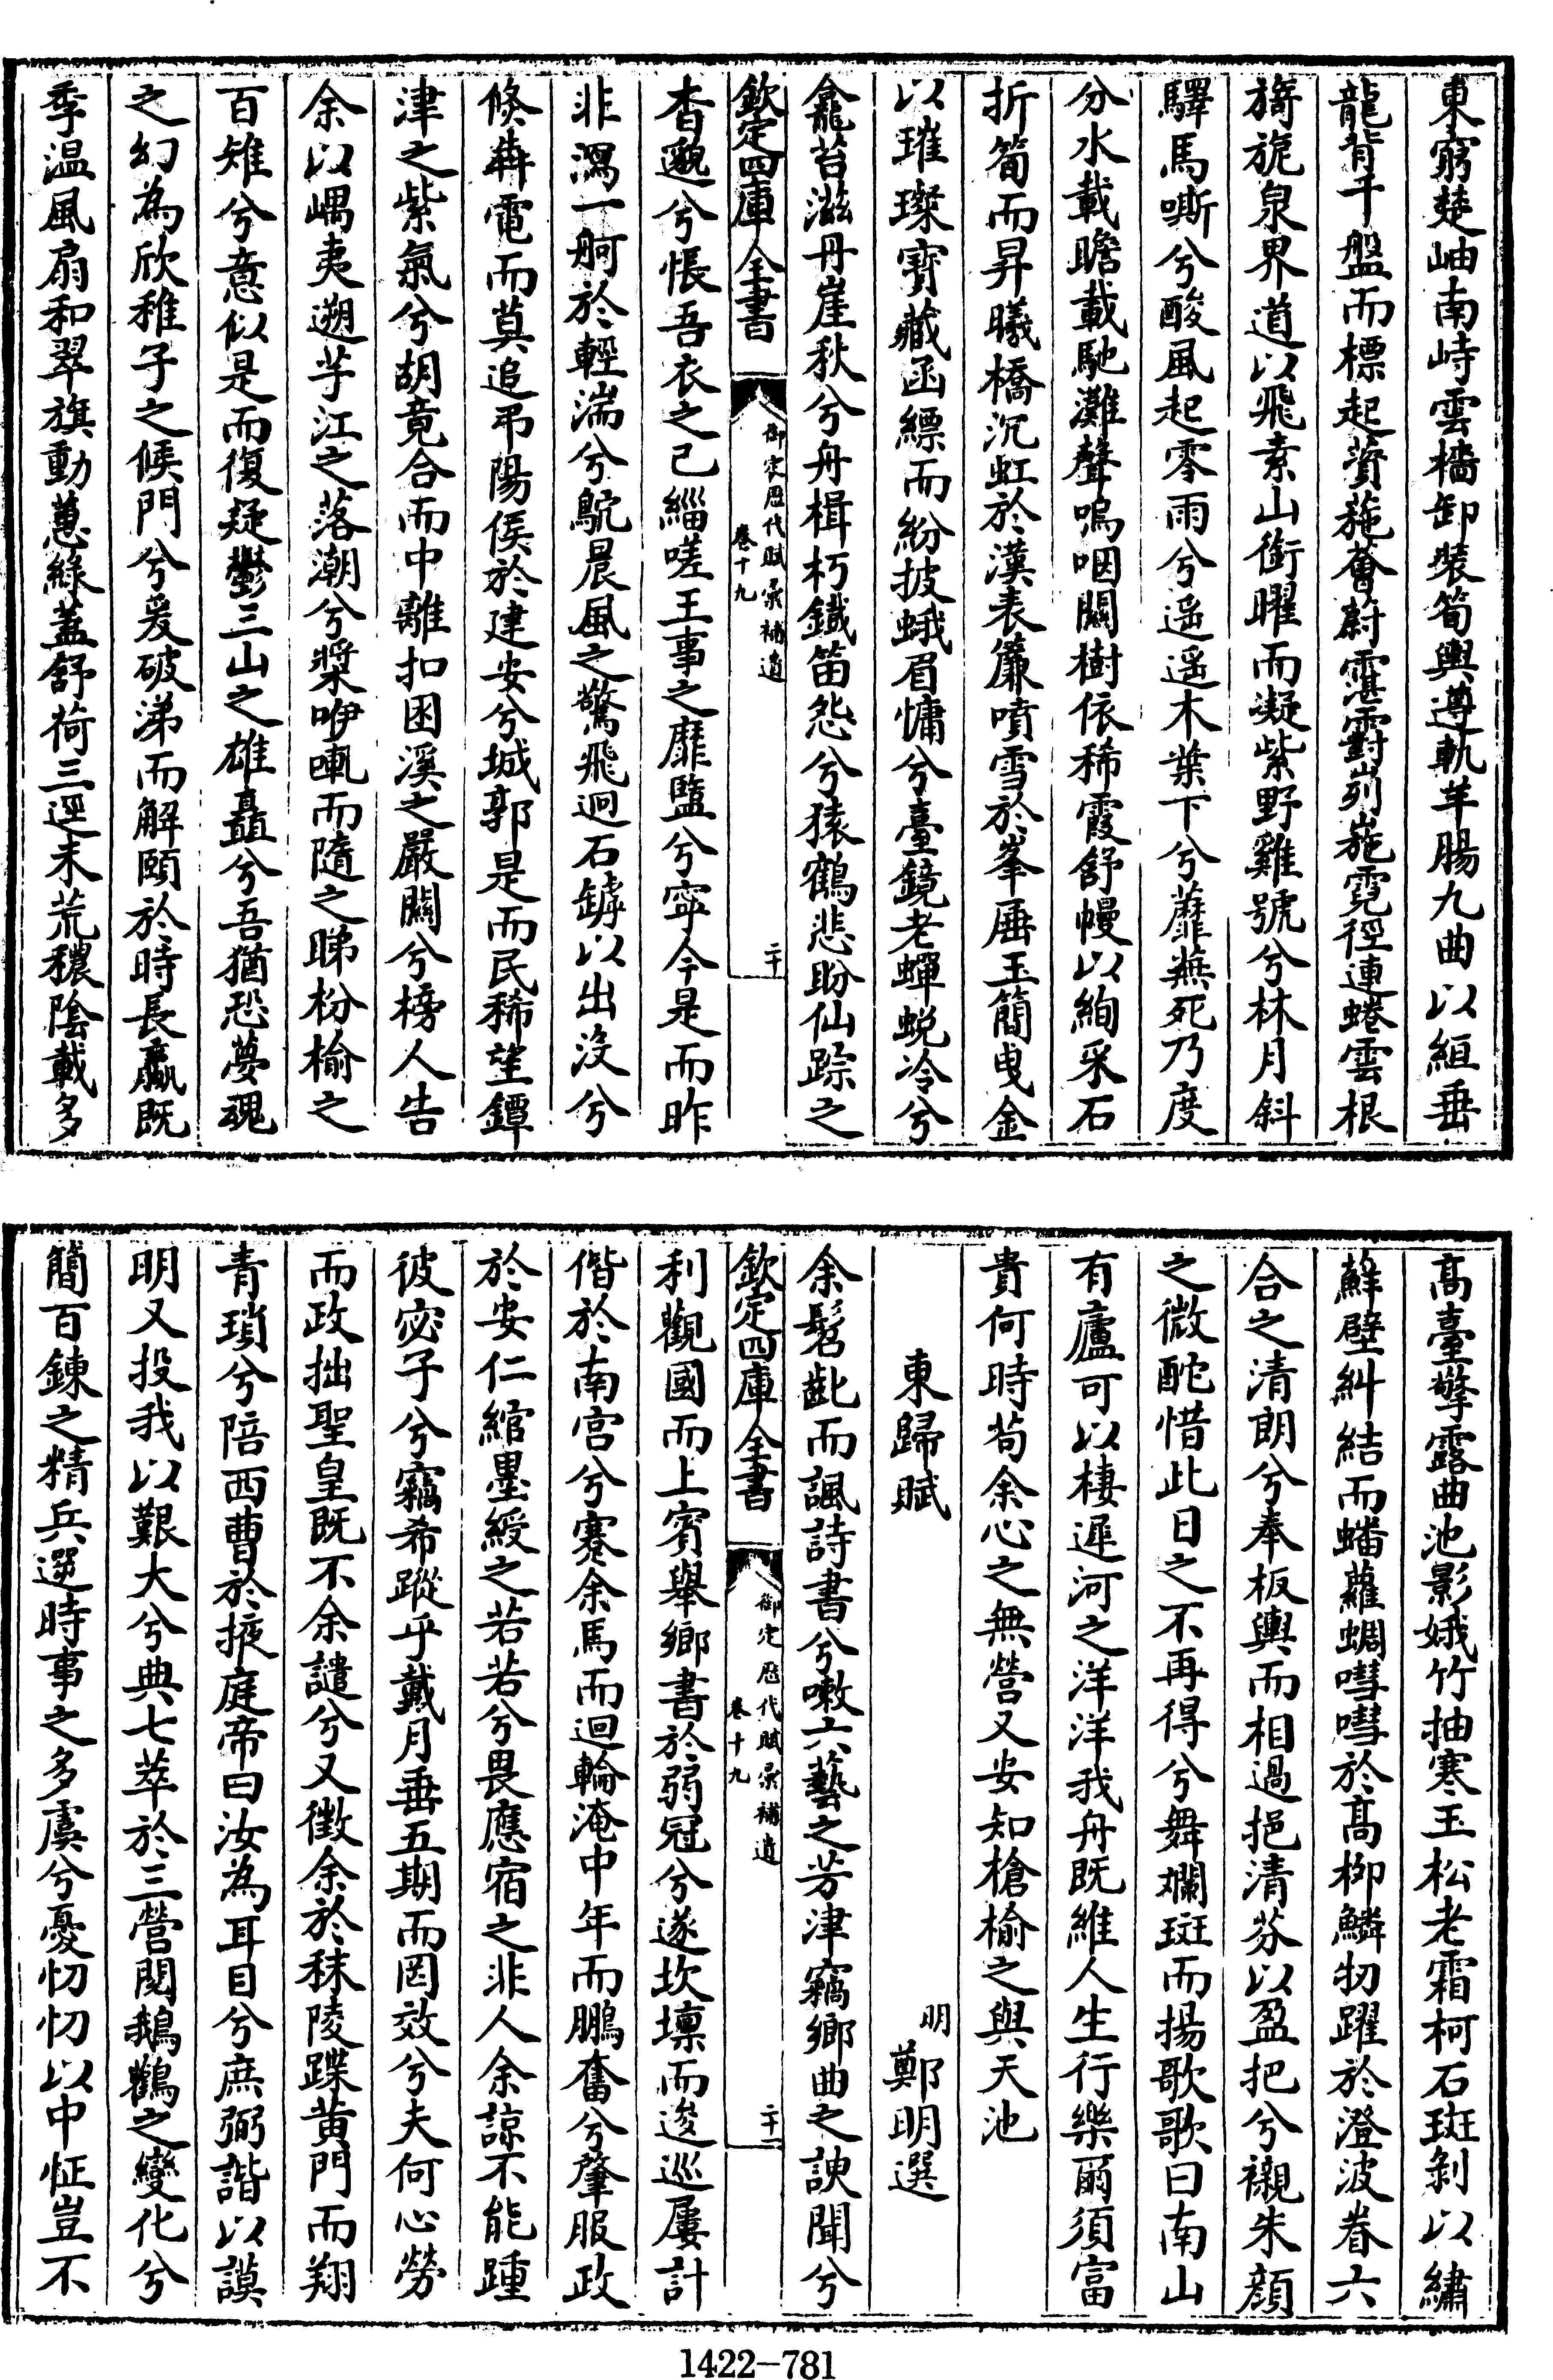 東窮楚岫南峙雲檣卸裝筍輿遵軌羊腸九曲以縆垂
龍背千盤而標起薋葹薈蔚霮䨴峛崺霓徑連蜷雲根
旖旎泉界道以飛素山銜曜而凝紫野雞號兮林月斜
驛馬嘶兮酸風起零雨兮遥遥木葉下兮蘼蕪死乃度
分水載瞻載馳灘聲嗚咽關樹依稀霞舒幔以絢采石
折筍而昇曦橋沉虹於漢表簾噴雪於峯厜玉簡曳金
以璀璨寶藏函縹而紛披蛾眉慵兮臺鏡老蟬蛻冷兮
龕苔滋丹崖秋兮舟楫朽鐵笛怨兮猿鶴悲盼仙踪之
欽定四庫全書
御定歷代賦彚補遺
卷十九
二十
杳邈兮悵吾衣之已緇嗟王事之靡盬兮寧今是而昨
非瀉一舸於輕湍兮鴥晨風之驚飛迥石罅以出沒兮
倏犇電而莫追弔陽侯於建安兮城郭是而民稀望鐔
津之紫氣兮胡竟合而中離扣困溪之嚴關兮榜人告
余以嵎夷遡芋江之落潮兮槳咿喇而隨之睇枌榆之
百雉兮意似是而復疑鬱三山之雄矗兮吾猶恐夢魂
之幻為欣稚子之候門兮爰破涕而解頤於時長嬴既
季温風扇和翠旗動蕙綠蓋舒荷三逕未荒穠陰載多
高臺擎露曲池影娥竹抽寒玉松老霜柯石斑剝以繡
蘚壁糾結而蟠蘿蜩嘒嘒於高栁鱗牣躍於澄波眷六
合之清朗兮奉板輿而相過挹清芬以盈把兮襯朱顔
之微酡惜此日之不再得兮舞斕斑而揚歌歌曰南山
有廬可以棲遲河之洋洋我舟既維人生行樂爾須富
貴何時苟余心之無營又安知槍榆之與天池
東歸賦
明 鄭明選
余髫齔而諷詩書兮嗽六藝之芳津竊鄉曲之諛聞兮
欽定四庫全書
御定歷代賦彚補遺
卷十九
二十一
利觀國而上賓舉鄉書於弱冠兮遂坎壈而逡巡屢計
偕於南宫兮蹇余馬而迴輪淹中年而鵬奮兮肇服政
於安仁綰墨綬之若若兮畏應宿之非人余諒不能踵
彼宓子兮竊希蹤乎戴月垂五期而罔效兮夫何心勞
而政拙聖皇既不余譴兮又徵余於秣陵蹀黄門而翔
青瑣兮陪西曹於掖庭帝曰汝為耳目兮庶弼諧以謨
明又投我以艱大兮典七萃於三營閱鵝鸛之變化兮
簡百鍊之精兵遝時事之多虞兮憂忉忉以中怔豈不
1422-781